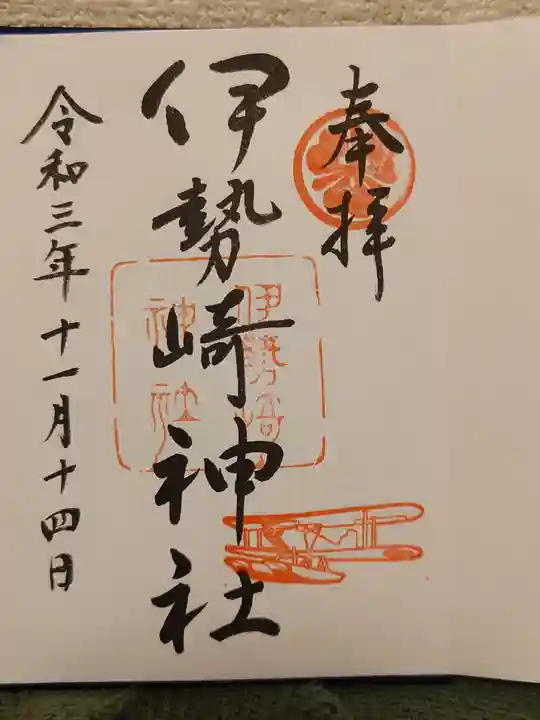 奉拝
伊勢崎神社
伊勢崎
神社
令和三年十一月十四日